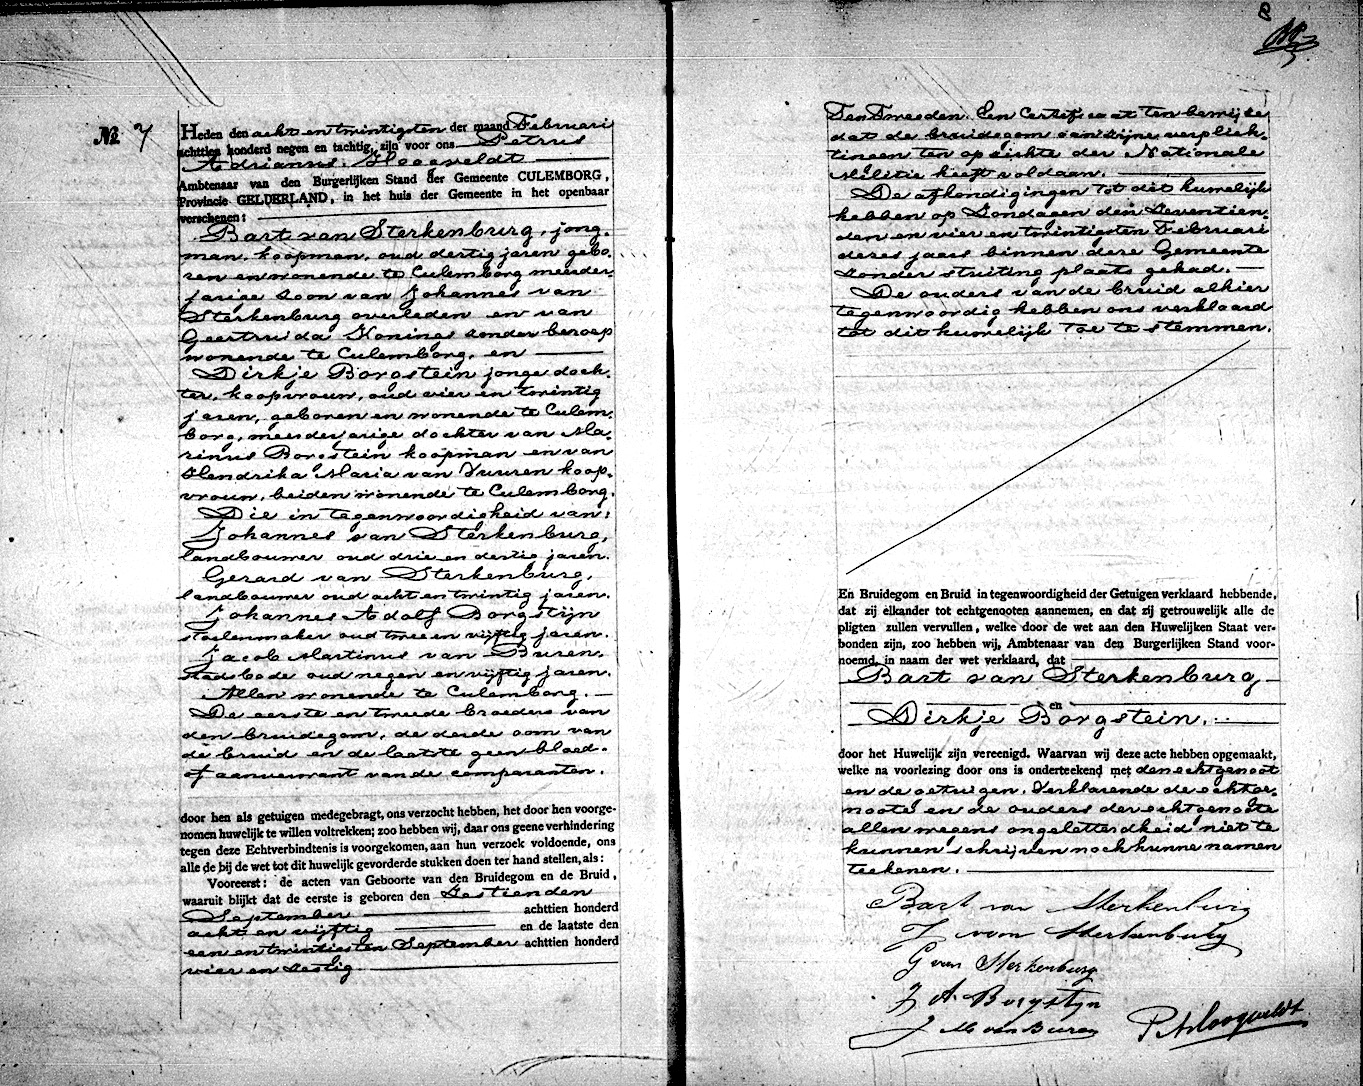 № 7
Heden den acht en twintigsten der maand Februari
achttien honderd negen en tachtig, zijn voor ons Petrus
Adrianus Hoogveldt
Ambtenaar van den Burgerlijken Stand der Gemeente CULEMBORG,
Provincie GELDERLAND, in het huis der Gemeente in het openbaar
verschenen:
Bart van Sterkenburg, jong-
man, koopman, oud dertig jaren gebo-
ren en wonende te Culemborg meerder-
jarige zoon van Johannes van
Sterkenburg overleden en van
Geertruida Konings zonder beroep
wonende te Culemborg, en
Dirkje Borgstein jonge doch-
ter, koopvrouw, oud vier en twintig
jaren, geboren en wonende te Culem-
borg, meerderjarige dochter van Ma-
rinus Borgstein koopman en van
Hendrika Maria van Vuuren koop-
vrouw, beiden wonende te Culemborg.
Die in tegenwoordigheid van:
Johannes van Sterkenburg,
landbouwer oud drie en dertig jaren.
Gerard van Sterkenburg,
landbouwer oud acht en twintig jaren.
Johannes Adolf Borgstijn
stoelenmaker oud twee en vijftig jaren.
Jacob Martinus van Buren,
stadsbode oud negen en vijftig jaren.
Allen wonende te Culemborg.
De eerste en tweede broeders van
den bruidegom, de derde oom van
de bruid en de laatste geen bloed-
of aanverwant van de comparanten.
door hen als getuigen medegebragt, ons verzocht hebben, het door hen voorge-
nomen huwelijk te willen voltrekken; zoo hebben wij, daar ons geene verhindering
tegen deze Echtverbindtenis is voorgekomen, aan hun verzoek voldoende, ons
alle de bij de wet tot dit huwelijk gevorderde stukken doen ter hand stellen, als:
Vooreerst: de acten van Geboorte van den Bruidegom en de Bruid,
waaruit blijkt dat de eerste is geboren den Zestienden
September achttien honderd
acht en vijftig en de laatste den
een en twintigsten September achttien honderd
vier en zestig.
8
Ten Tweeden. Een Certificaat ten bewijze
dat de bruidegom aan zijne verplich-
tingen ten opzichte der Nationale
Militie heeft voldaan.
De afkondigingen tot dit huwelijk
hebben op Zondagen den zeventien-
den en vier en twintigsten Februari
dezes jaars binnen deze Gemeente
zonder stuiting plaats gehad.
De ouders van de bruid alhier
tegenwoordig hebben ons verklaard
tot dit huwelijk toe te stemmen.
En Bruidegom en Bruid in tegenwoordigheid der Getuigen verklaard hebbende,
dat zij elkander tot echtgenooten aannemen, en dat zij getrouwelijk alle de
pligten zullen vervullen, welke door de wet aan den Huwelijken Staat ver-
bonden zijn, zoo hebben wij, Ambtenaar van den Burgerlijken Stand voor-
noemd, in naam der wet verklaard, dat
Bart van Sterkenburg
en
Dirkje Borgstein.
door het Huwelijk zijn vereenigd. Waarvan wij deze acte hebben opgemaakt,
welke na voorlezing door ons is onderteekend met den echtgenoot
en de getuigen. Verklarende de echtge-
noote en de ouders der echtgenoote
allen wegens ongeletterdheid niet te
kunnen schrijven noch hunne namen
teekenen.
Bart van Sterkenburg
J van Sterkenburg
G van Sterkenburg
J A Borgstijn
J M van Buren
P A Hoogveldt